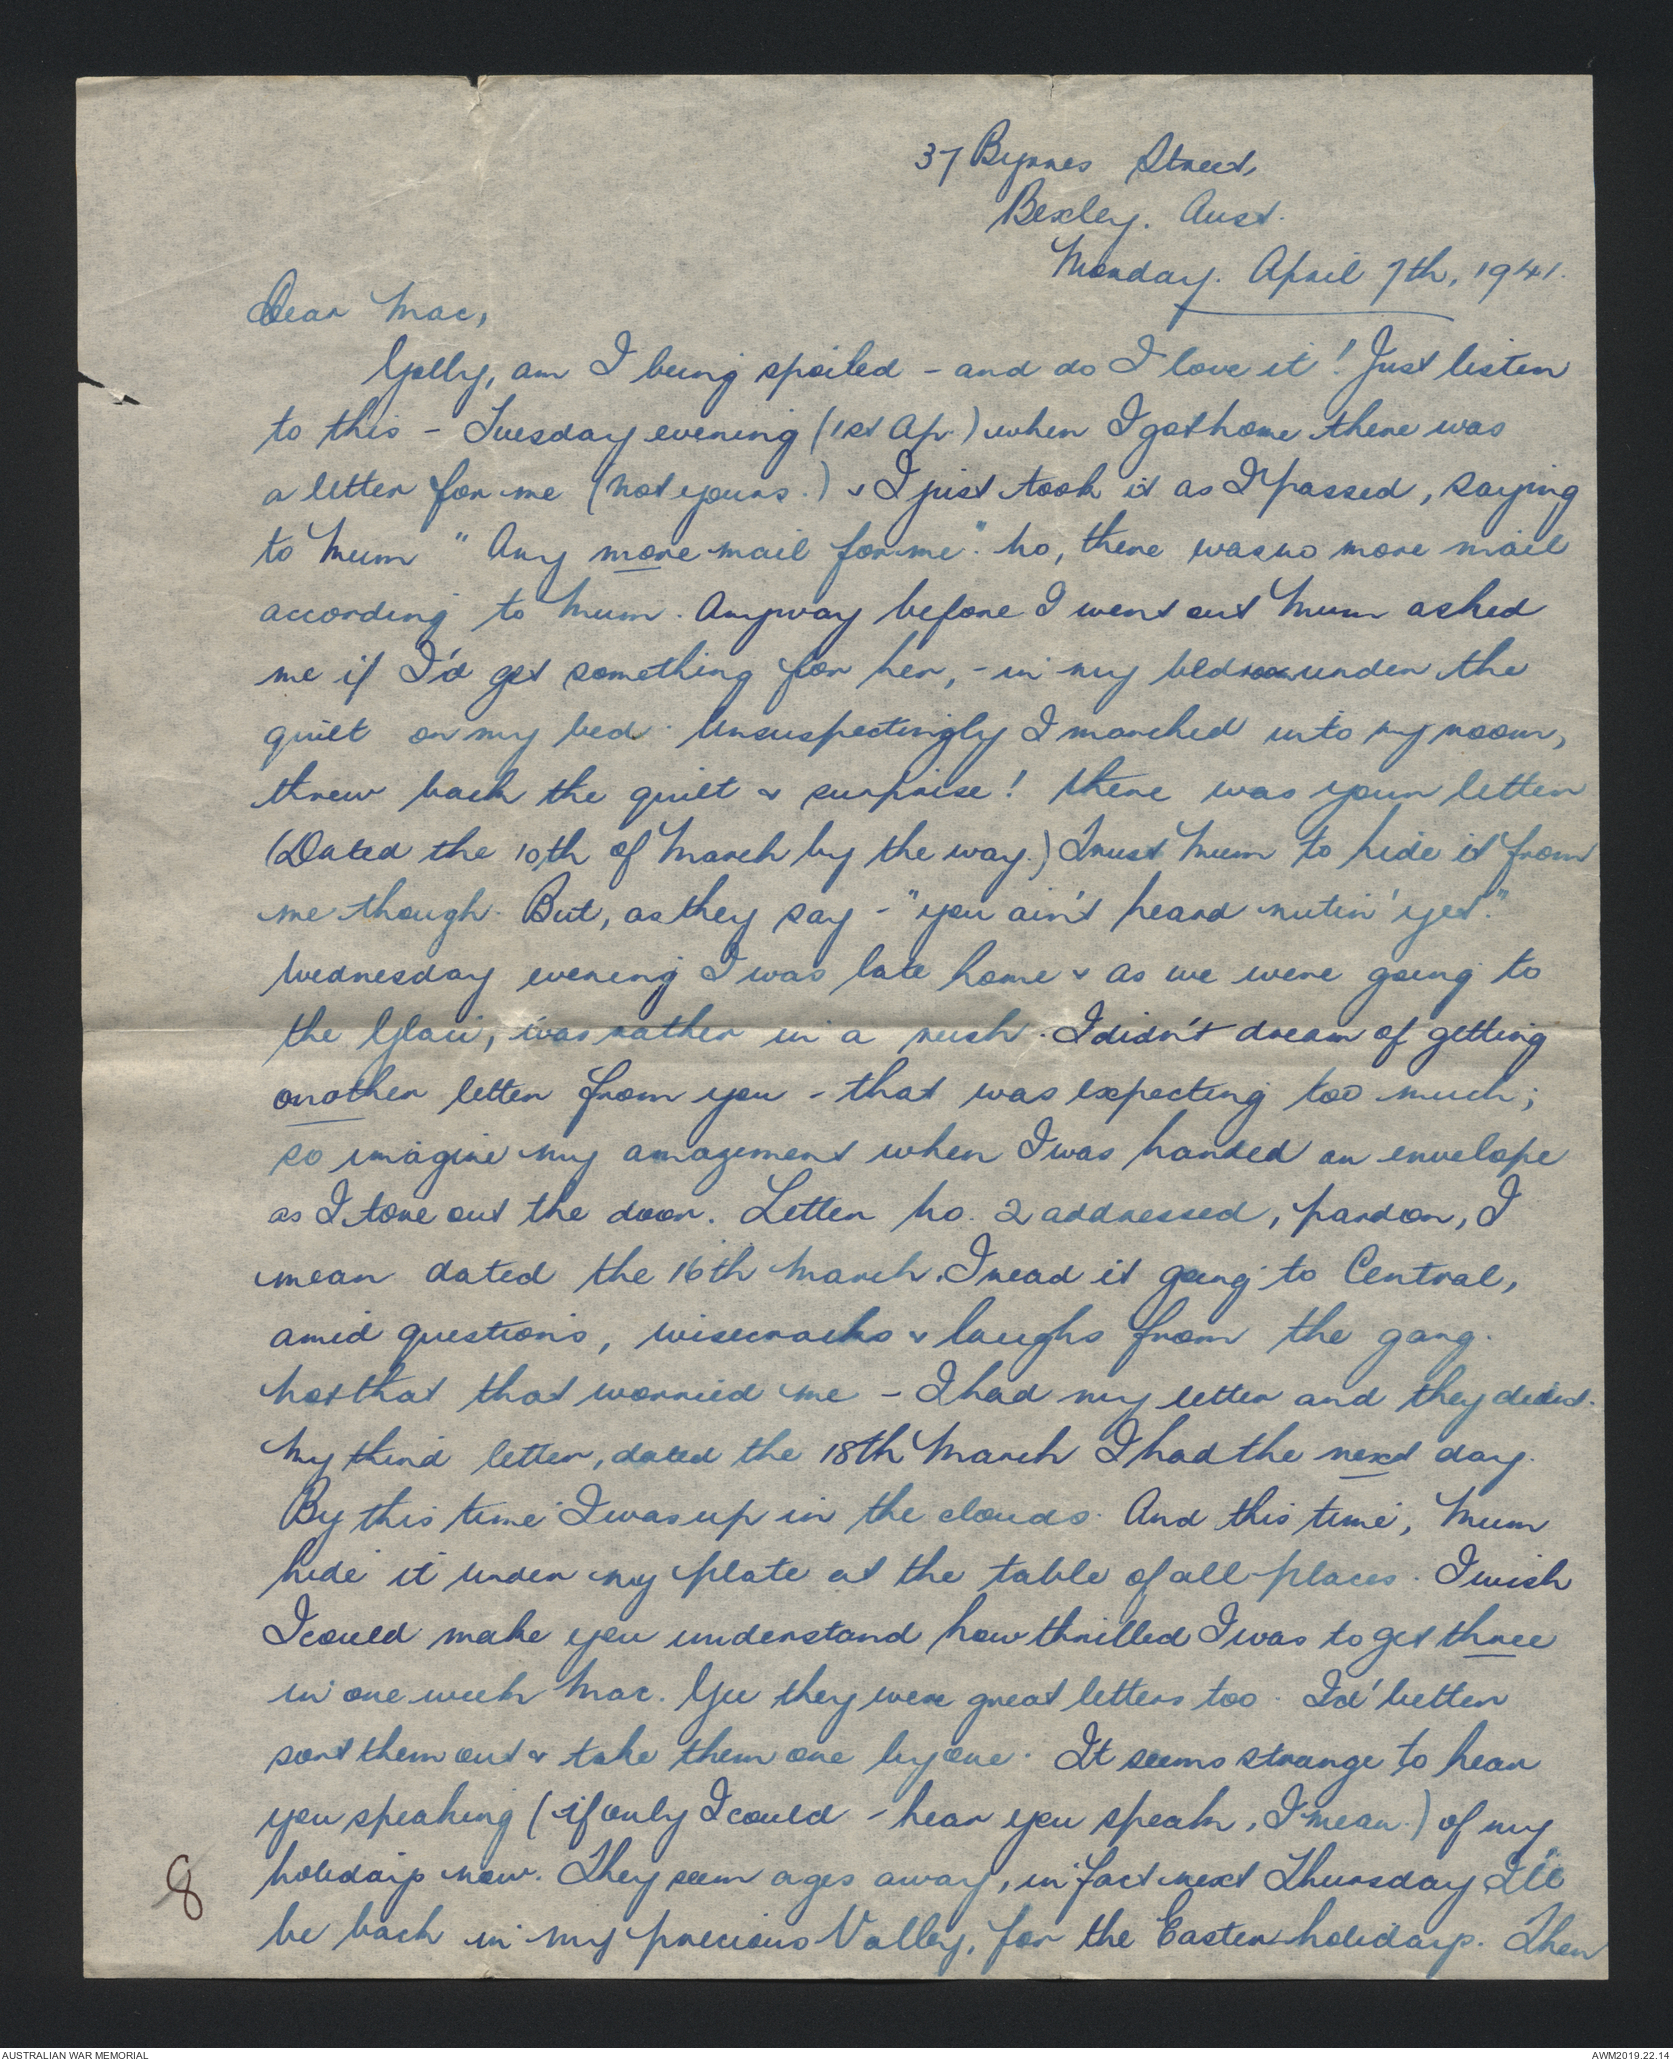 37 Byrnes Street,
Bexley. Aust.
Monday. April 7th, 1941.
Dear Mac,
Golly, am I being spoiled - and do I love it! Just listen
to this - Tuesday evening (1st Ap.) when I got home there was
a letter for me (not yours.) & I just took it as I passed, saying
to Mum "Any more mail for me". No, there was no more mail
according to Mum. Anyway before I went out Mum asked
me if I'd get something for her, - in my bedroom under the
quilt on my bed. Unsuspectingly I marched into my room,
threw back the quilt & surprise! there was your letter
(Dated the 10th of March by the way.) Trust Mum to hide it from
me though. But, as they say - "you ain't heard nutin' yet."
Wednesday evening I was late home & as we were going to
the Glaci, was rather in a rush. I didn't dream of getting
another letter from you - that was expecting too much;
so imagine my amazement when I was handed an envelope
as I tore out the door. Letter No. 2 addressed, pardon, I
mean dated the 16th March. I read it going to Central,
amid questions, wisecracks & laughs from the gang.
Not that that worried me - I had my letter and they didn't.
My third letter, dated the 18th March I had the next day.
By this time I was up in the clouds. And this time, Mum
hide it under my plate at the table of all places. I wish
I could make you understand how thrilled I was to get three
in one week Mac. Gee they were great letters too. I'd better
sort them out & take them one by one. It seems strange to hear
you speaking (if only I could - hear you speak, I mean.) of my
holidays now. They seem ages away, in fact next Thursday I'll
be back in my precious Valley, for the Easter holidays. Then
8
AUSTRALIAN WAR MEMORIAL
AWM2019.22.14